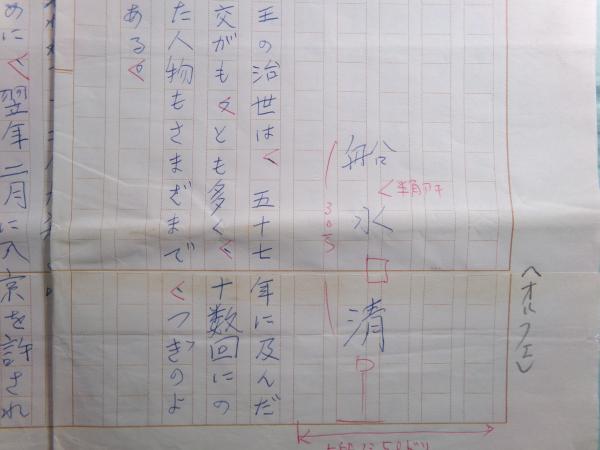 〈オルフェ〉
船水 清
半角アキ
王の治世は、五十七年に及んだ
交がもっとも多く、十数回にの
た人物もさまざまで、つぎのよ
ある。
めに、翌年二月に入京を許され